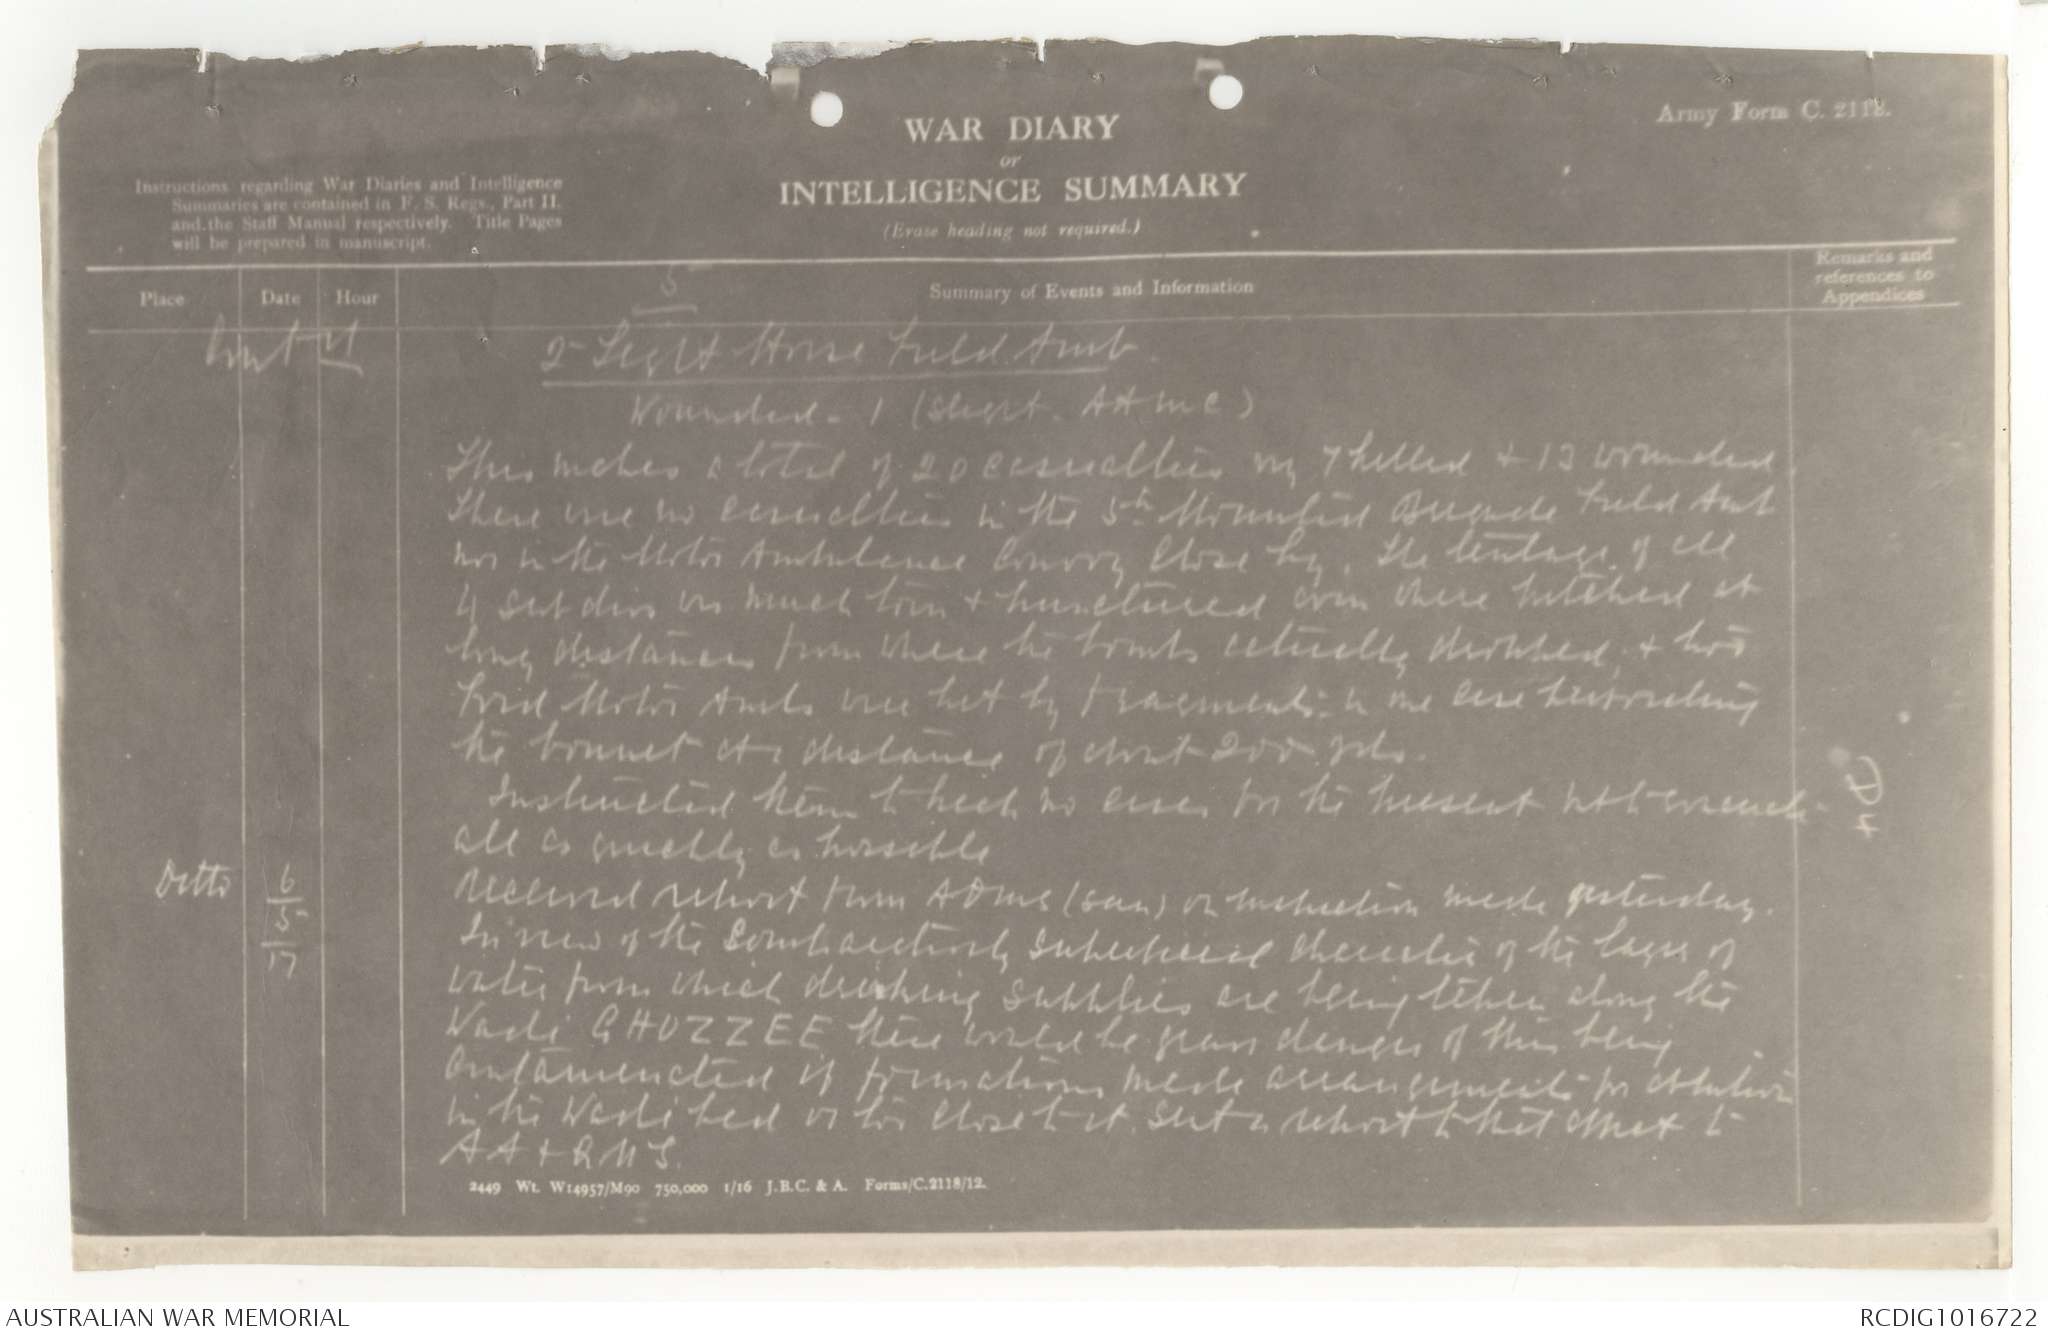 Army Form C. 2118.
WAR DIARY
or
INTELLIGENCE SUMMARY
(Erase heading not required.)
Instructions regarding War Diaries and Intelligence
Summaries are contained in F. S. Regs., Part II.
and the Staff Manual respectively. Title Pages
will be prepared in manuscript.
Place
Date
Hour
Summary of Events and Information
Remarks and
references to
Appendices
5
2 Light Horse Field Amb.
Wounded - 1 (slight. AAMC)
This makes a total of 20 casualties viz 7 killed & 13 wounded.
There were no casualties in the 5th Mounted Brigade Field Amb
nor in the Motor Ambulance Convoy close by. The tentage of all
4 sub divs was much torn & punctured even where pitched at
long distances from where the bombs actually dropped, & two
Ford Motor Ambs were hit by fragments in one case perforating
the bonnet at a distance of about 200 yds.
Instructed them to keep no cases for the present but to evacuate
all as quickly as possible
Ditto
6
5
17
Received report from ADMS (San) on inspection made yesterday.
In view of the comparatively superficial character of the layer of
water from which drinking supplies are being taken along the
Wadi GHUZZEE there would be grave danger of this being
contaminated if formations made arrangements for ablution
in the Wadi bed or too close to it. Sent a report to that effect to
AA & QMG.
2449 Wt. W14957/M90 750,000 1/16 J.B.C. & A. Forms/C.2118/12.
AUSTRALIAN WAR MEMORIAL
RCDIG1016722